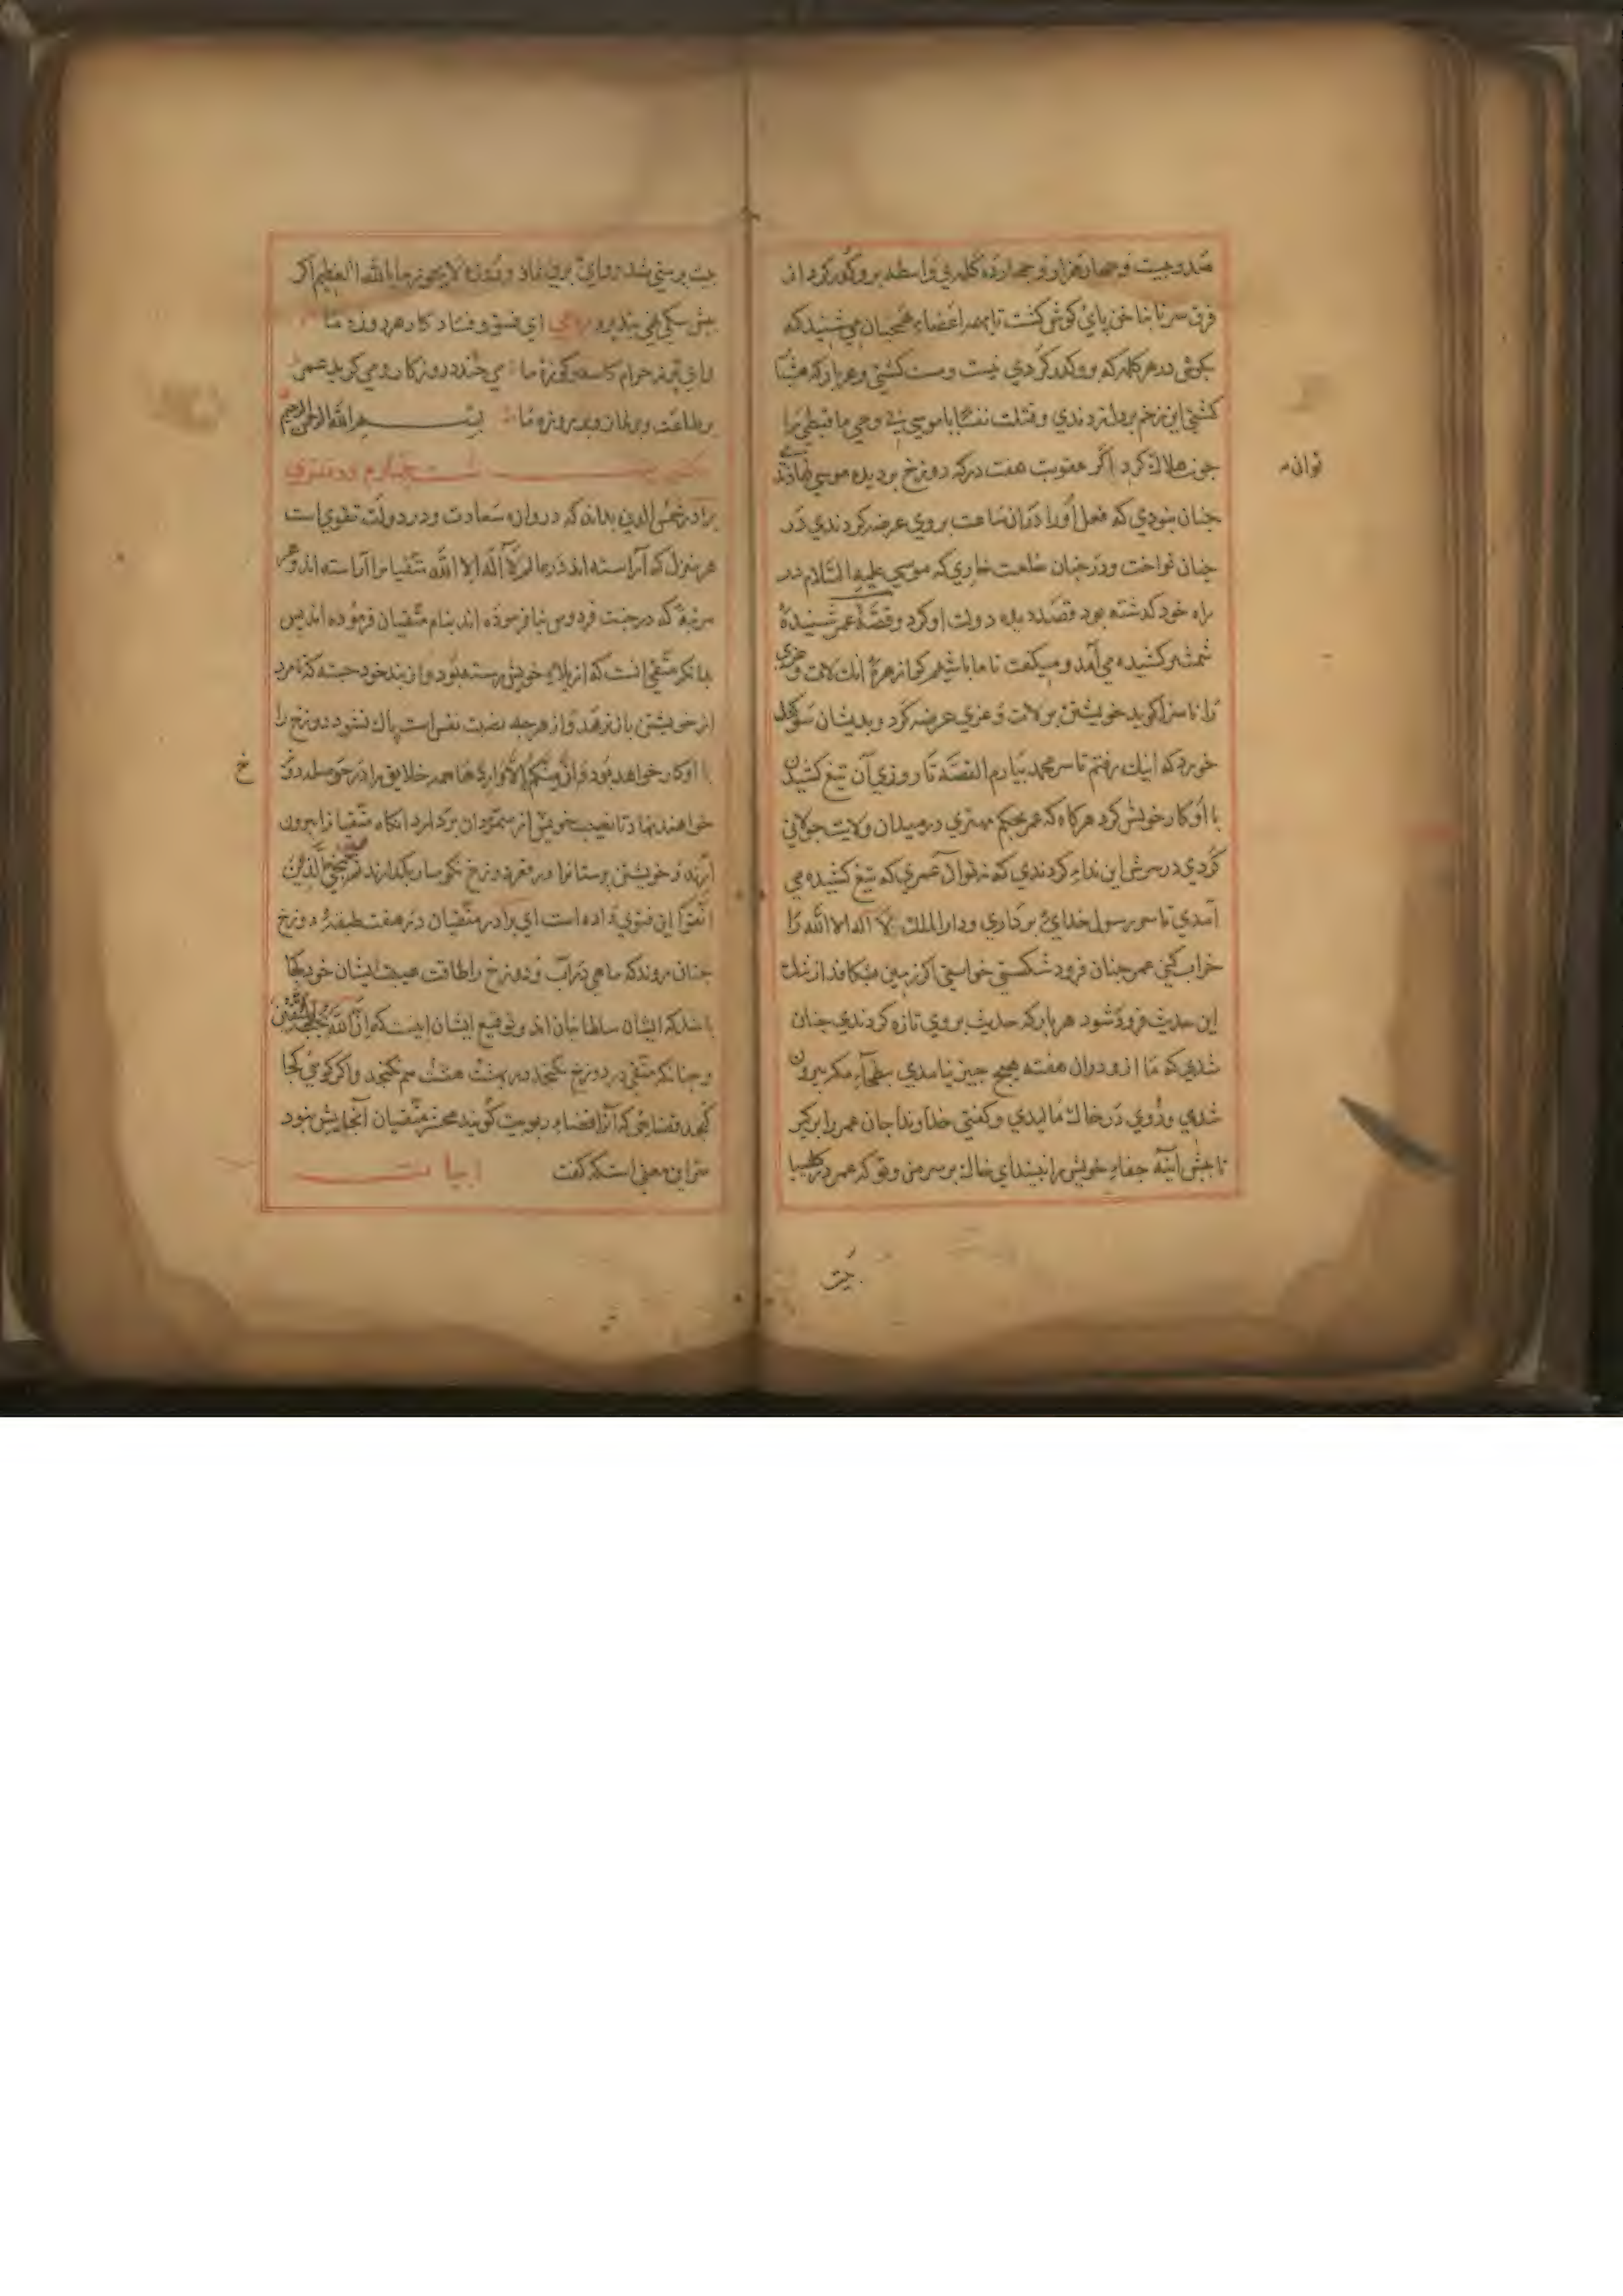 صد و بیست و چهار هزار و چهارده کلمه بی واسطه برو کذر کرد از
فرق سر تا ناخن پای کوش کشت تا بهمه اعضاء همچنان می شنید که
بکوش در هر کلمه که برو کذر کردی نیست و مست کشتی و هر بار که هشیار
کشتی این زخم بر دلش زدندی و قتلت نفسا یا موسی بی وحی ما قبطی را
جون هلاك کردی اکر عقوبت هفت درکه دوزخ بر دیده موسی نهادندی
جنان نبودی که فعل او را در آن ساعت بر وی عرضه کردندی در
جنان نواخت و در جنان خلعت خاری که موسی علیه السلام در
راه خود کذاشته بود قصد دیده دولت او کرد و قصۀ عمر شنیدۀ
شمشیر کشیده می آمد و میکفت تا ما باشیم کرا زهرۀ آنك لات و عزی
را ناسزا کوید خویشتن بر لات و عزی عرضه کرد و بدیشان سوکند
خورد که اینك رفتم تا سر محمد بیارم القصه تا روزی آن تیغ کشیدن
با او کار خویش کرد هرکاه که عمر بحکم مهتری در میدان ولایت جولانی
کردی در سرش این نداء کردندی که نه تو آن عمری که تیغ کشیده می
آمدی تا سر رسول خدای برداری و دار الملك لا اله الا الله را
خراب کنی عمر جنان فرود شکستی خواستی که زمین بشکافد از ننك
این حدیث فرو شود هر بار که حدیث بر وی تازه کردندی جنان
شدی که تا از و دران هفته هیچ جیز نیامدی بطحآء مکه بیرون
شدی و روی در خاك مالیدی و کفتی خداوندا جان عمر را برکیر
تا جش اینه جفاء خویش را نبیند ای خاك بر سر من و تو که عمر در
توان
جیت
بیش سکی نهی نپذیرد رباعی ای فسق و فساد کار هر روزه ما
وای پر ز حرام کاسه و کوزۀ ما می خندد روزکار و می کرید عمر
بر طاعت و بر نماز و بر روزه ما بسم الله الرحمن الرحیم
مکتوب شصت چهارم در تقوی
برادر شمس الدین بداند که دروازه سعادت و در دولت تقوی است
هر منزل که آراسته اند در عالم لا اله الا الله متقیان را آراسته اند و هر
مرتبۀ که در جنت فردوس بنا فرموده اند بنام متقیان فرموده اند پس
بدانکه متقی انست که از بلاء خویش رسته بود و از بند خود جسته که تا مرد
از خویشتن باز نرهد و از هرجه نصیب نفس است پاك نشود دوزخ را
با او کار خواهد بود و ان منکم الا واردها همه خلایق را در
خواهند نهاد تا نصیب خویش از متمردان بردارد انکاه متقیان را بیرون
آرند و خویشتن پرستانرا در قعر دوزخ نکوسار بکذارند ثم ننجی الذین
اتقوا این فتوی داده است ای برادر متقیان در هفت طبقۀ دوزخ
جنان روند که ماهی در آب و دوزخ را طاقت هیبت ایشان خود کجا
باشد که ایشان سلطانان اند و توقیع ایشان اینست که ان الله یحب المتقین
و جنانکه متقی در دوزخ نکنجد در بهشت هشت هم نکنجد و اکر کوئی کجا
کنجد فضایی که آنرا فضاء ربوبیت کویند محشر متقیان آنجا بیش نبود
سر این معنی است که کفت ابیات
خ